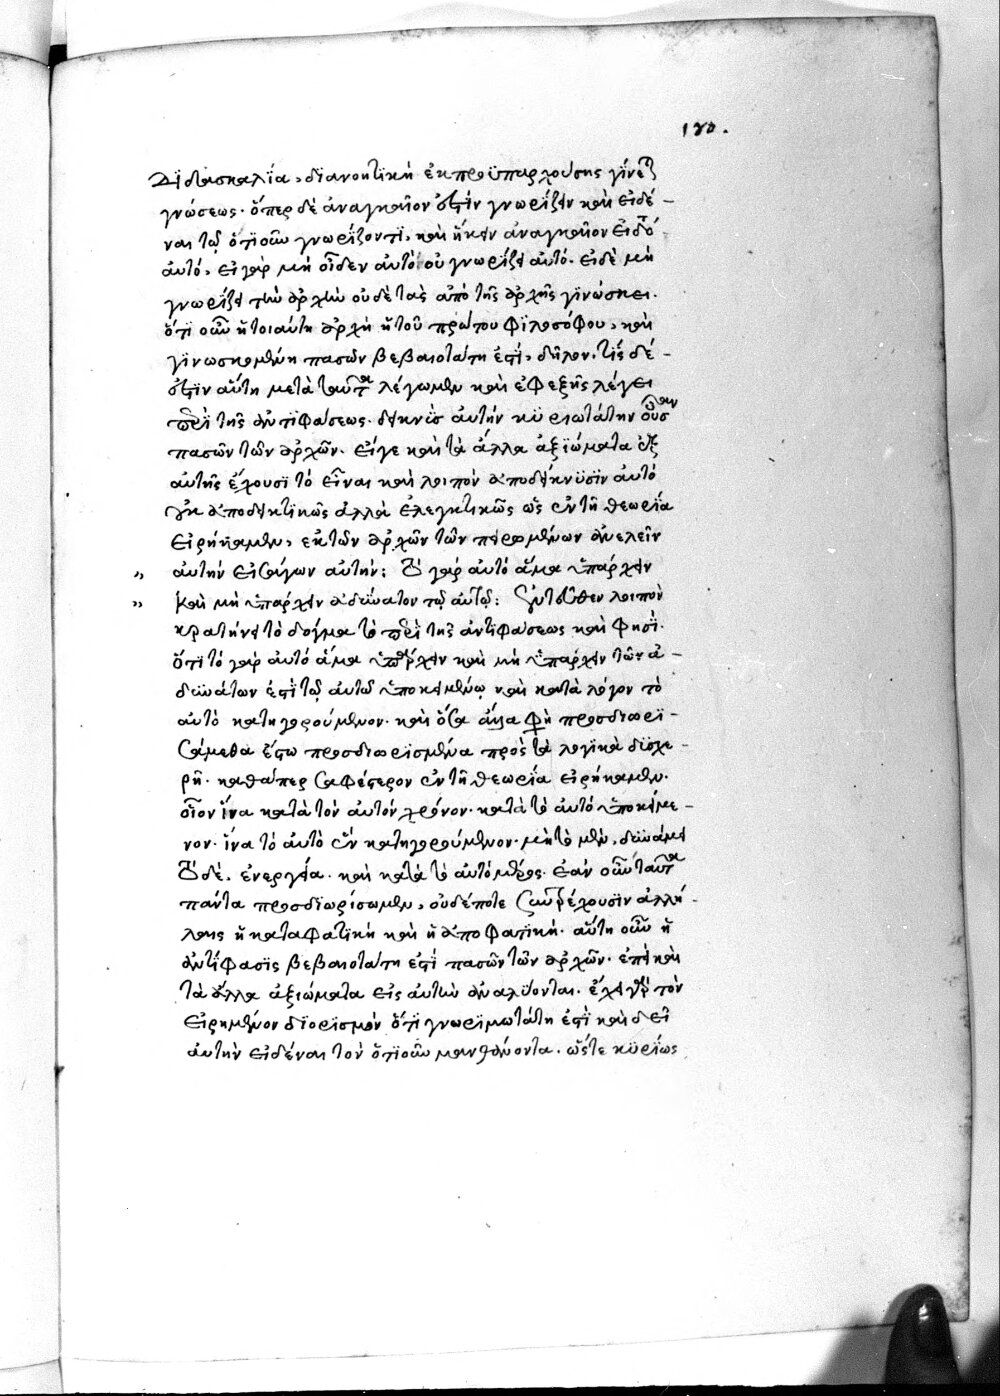 διδασκαλία, διανοητικὴ ἐκ προϋπαρχούσης γίνεται
γνώσεως· ὅπερ δὲ ἀναγκαῖον ἐστὶν γνωρίζειν καὶ εἰδέ-
ναι τῷ ὁτιοῦν γνωρίζοντι, καὶ ἥκειν ἀναγκαῖον εἰδότα
αὐτό, εἰ γὰρ μὴ οἶδεν αὐτὸ οὐ γνωρίζει αὐτό· εἰ δὲ μὴ
γνωρίζει τὴν ἀρχὴν οὐδὲ τὰς ἀπὸ τῆς ἀρχῆς γινώσκει.
ὅτι οὖν ἡ τοιαύτη ἀρχὴ ἡ τοῦ πρώτου φιλοσόφου, καὶ
γινωσκομένη πασῶν βεβαιοτάτη ἐστί, δῆλον· τίς δέ-
ἐστιν αὕτη μετὰ ταῦτα λέγωμεν καὶ ἐφεξῆς λέγει
περὶ τῆς ἀντιφάσεως· δεικνὺς αὐτὴν κυριωτάτην οὖσαν
πασῶν τῶν ἀρχῶν. εἴγε καὶ τὰ ἄλλα ἀξιώματα ἐξ
αὐτῆς ἔχουσι τὸ εἶναι καὶ λοιπὸν ἀποδείκνυσιν αὐτὸ
οὐκ ἀποδεικτικῶς ἀλλὰ ἐλεγκτικῶς ὡς ἐν τῇ θεωρίᾳ
εἰρήκαμεν, ἐκ τῶν ἀρχῶν τῶν πειρωμένων ἀνελεῖν
αὐτὴν εἰσάγων αὐτήν: Τὸ γὰρ αὐτὸ ἅμα ὑπάρχειν
καὶ μὴ ὑπάρχειν ἀδύνατον τῷ αὐτῷ: Ἐντεῦθεν λοιπὸν
κρατύνει τὸ δόγμα τὸ περὶ τῆς ἀντιφάσεως καὶ φησὶ.
ὅτι τὸ γὰρ αὐτὸ ἅμα ὑπάρχειν καὶ μὴ ὑπάρχειν τῶν ἀ-
δυνάτων ἐστὶ τῷ αὐτῷ ὑποκειμένῳ καὶ κατὰ λόγον τὸ
αὐτὸ κατηγορούμενον· καὶ ὅσα ἄλλα φησὶ προσδιωρι-
σάμεθα ἔστω προσδιωρισμένα πρὸς τὰ λογικὰ δυσχε-
ρῆ· καθάπερ σαφέστερον ἐν τῇ θεωρίᾳ εἰρήκαμεν.
οἷον ἵνα κατὰ τὸν αὐτὸν χρόνον· κατὰ τὸ αὐτὸ ὑποκείμε-
νον· ἵνα τὸ αὐτὸ ἓν κατηγορούμενον· μὴ τὸ μὲν, δυνάμει
τὸ δὲ, ἐνεργείᾳ· καὶ κατὰ τὸ αὐτὸ μέρος· ἐὰν οὖν ταῦτα
πάντα προσδιωρίσωμεν, οὐδέποτε συντρέχουσιν ἀλλή-
λαις ἡ καταφατικὴ καὶ ἡ ἀποφατική· αὕτη οὖν ἡ
ἀντίφασις βεβαιοτάτη ἐστὶ πασῶν τῶν ἀρχῶν· ἐπεὶ καὶ
τὰ ἄλλα ἀξιώματα εἰς αὐτὴν ἀναλύονται. ἔχει γὰρ τὸν
εἰρημένον διορισμόν ὅτι γνωριμωτάτη ἐστὶ καὶ δεῖ
αὐτὴν εἰδέναι τὸν ὁτιοῦν μανθάνοντα. ὥστε κυρίως